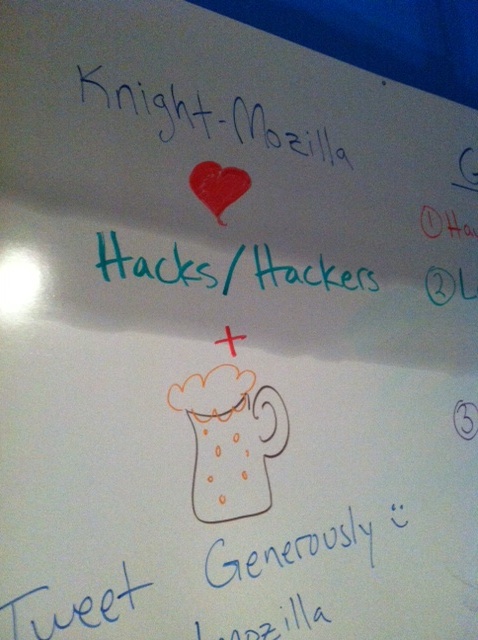 Knight-Mozilla
Hacks/Hackers
+
Tweet Generously :)
mozilla
①
②
③